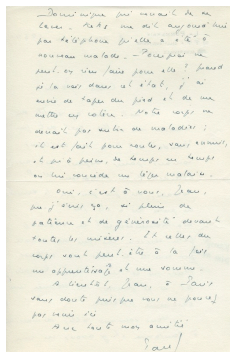 Dominique qui venait de se
lever. Mais me dit aujourd'hui
par téléphone qu'elle a été à
nouveau malade. - Pourquoi ne
peut-on rien faire pour elle ? Quand
je la vois dans cet état, j'ai
envie de taper du pied et de me
mettre en colère. Notre corps ne
devrait pas avoir de maladies ;
il est fait pour sauter, vous
et qu'à peine, de temps en temps
on lui concède un léger malaise.
Oui, c'est à vous, Jean,
que j'écris ça, si plein de
patience et de générosité devant
toutes les misères. Et celles du
corps vont peut-être à la fois
un apprentissage et une
A bientôt, Jean, à Paris
sans doute puisque vous ne pouvez
pas venir ici
Avec toute mon amitié
Paul